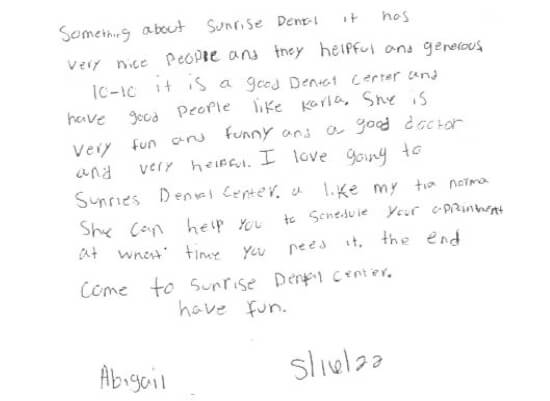 Something about Sunrise Dental it has
very nice people and they helpful and generous
10-10 it is a good Dental center and
have good people like Karla. She is
very fun and funny and a good doctor
and very helpful. I love going to
Sunries Dental Center. a like my tia norma
She can help you to schedule your appointment
at what time you need it. the end
Come to Sunrise Dental center.
have fun.
Abigail
5/16/22